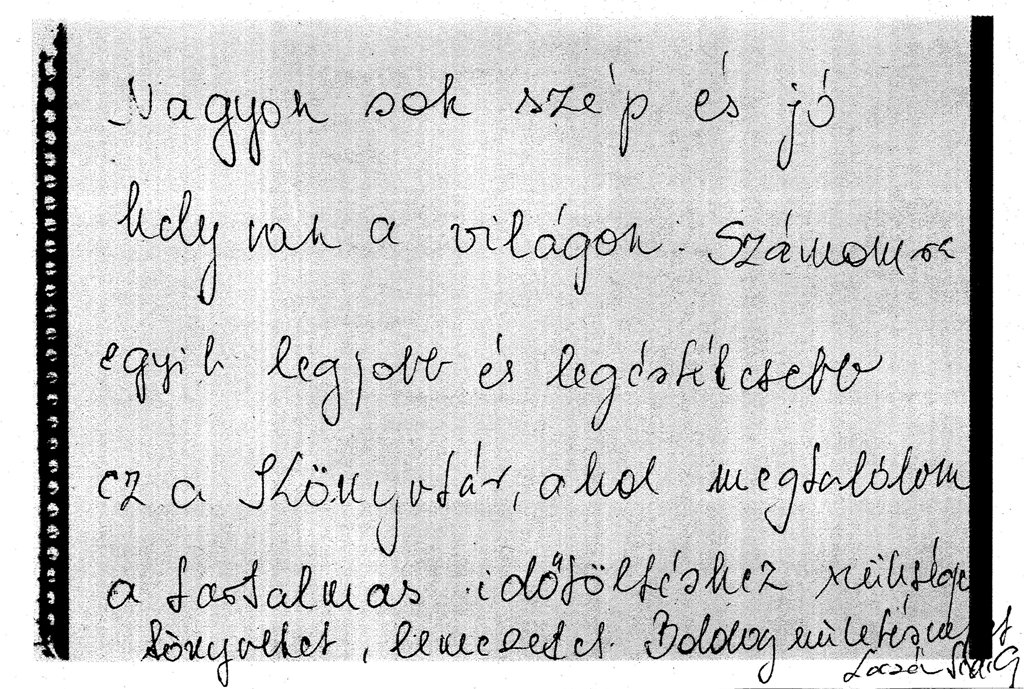 Nagyon sok szép és jó
hely van a világon. Számomra
egyik legjobb és legértékesebb
ez a Könyvtár, ahol megtalálom
a tartalmas időtöltéshez szüksége
könyveket, lemezeket. Boldog születésnapot